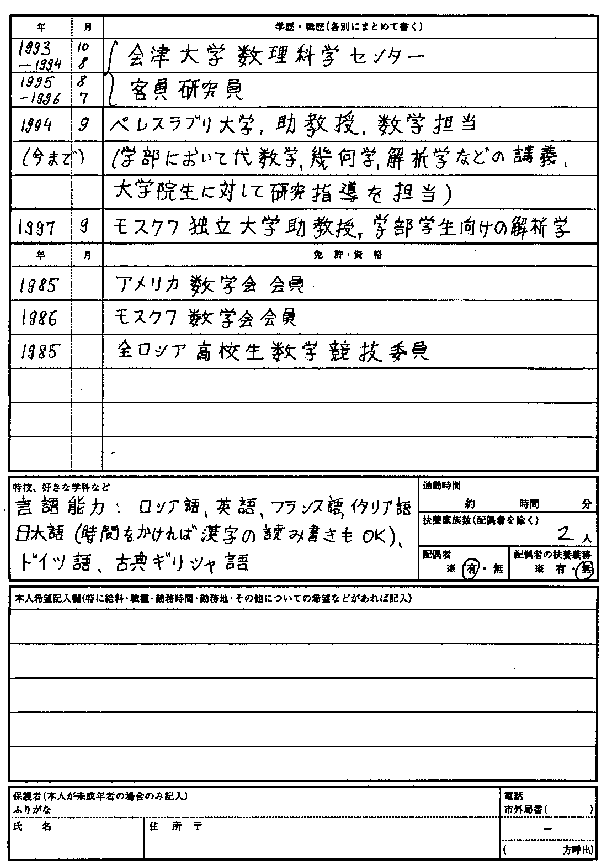 年 月 学歴・職歴(各別にまとめて書く)
1993 10 会津大学数理科学センター
-1994 8
1995 8 客員研究員
-1996 7
1994 9 ペレスラブリ大学, 助教授, 数学担当
(今まで) (学部において代数学, 幾何学, 解析学などの講義,
大学院生に対して研究指導を担当)
1997 9 モスクワ独立大学助教授, 学部学生向けの解析学
年 月 免許・資格
1985 アメリカ数学会会員
1986 モスクワ数学会会員
1985 全ロシア高校生数学競技委員
特技、好きな学科など
言語能力: ロシア語、英語、フランス語, イタリア語
日本語(時間をかければ漢字の読み書きもOK)、
ドイツ語、古典ギリシャ語
通勤時間
約 時間 分
扶養家族数(配偶者を除く)
2人
配偶者
※ 有・無
配偶者の扶養義務
※ 有・無
本人希望記入欄(特に給料・職種・勤務時間・勤務地・その他についての希望などがあれば記入)
保護者(本人が未成年者の場合のみ記入)
ふりがな
氏 名 住 所 〒
電話
市外局番( )
–
( 方呼出)